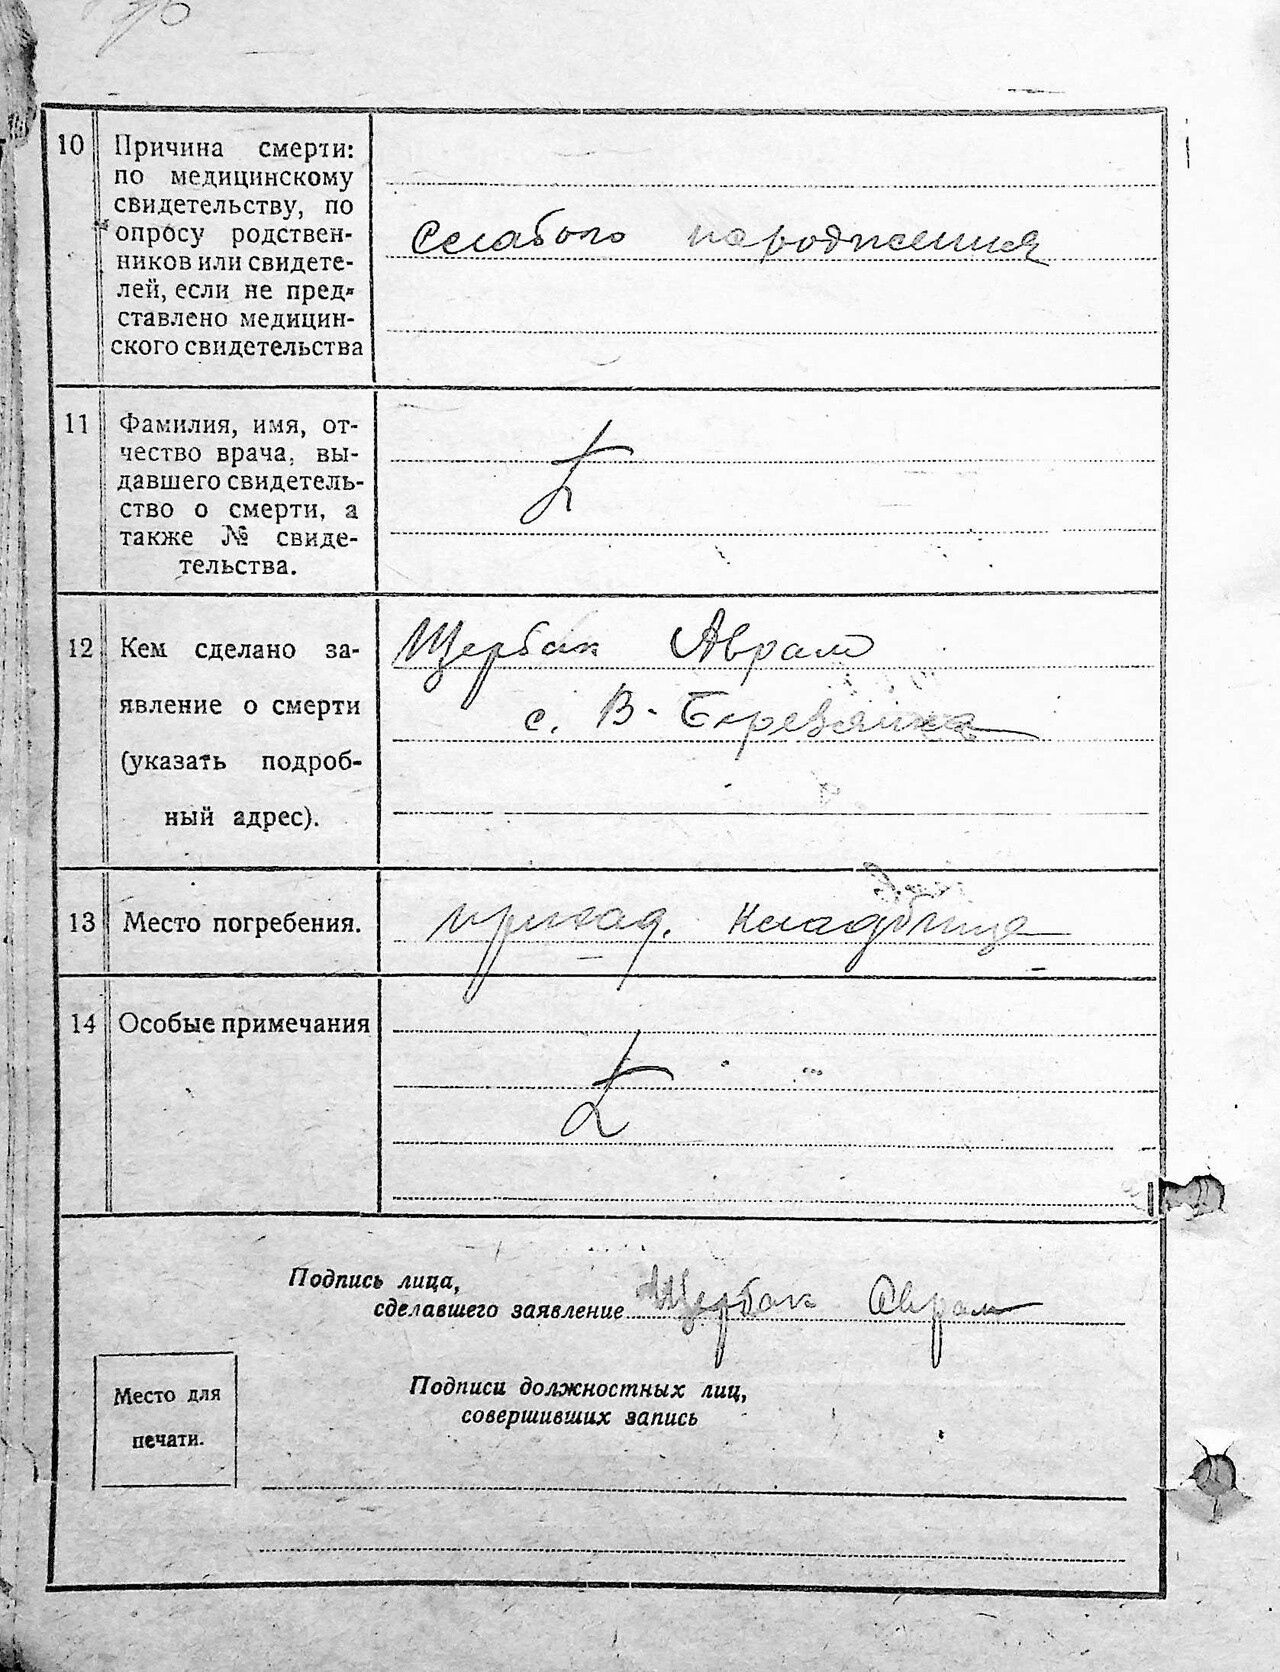 10 Причина смерти:
по медицинскому
свидетельству, по
опросу родствен-
ников или свидете-
лей, если не пред-
ставлено медицин-
ского свидетельства
Слабого народження
11 Фамилия, имя, от-
чество врача, вы-
давшего свидетель-
ство о смерти, а
также № свиде-
тельства.
12 Кем сделано за-
явление о смерти
(указать подроб-
ный адрес).
Щербак Аврам
с. В-
13 Место погребения.
кладбище
14 Особые примечания
Подпись лица,
сделавшего заявление Щербак Аврам
Место для
печати.
Подписи должностных лиц,
совершивших запись